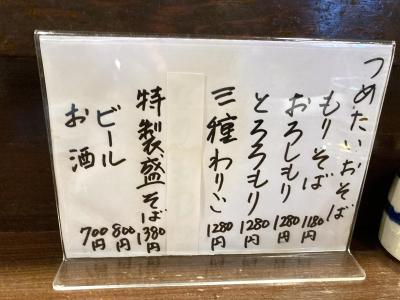 つめたいおそば
もりそば 1180円
おろしもり 1280円
とろろもり 1280円
三種わりご 1280円
特製盛そば 1380円
ビール 800円
お酒 700円